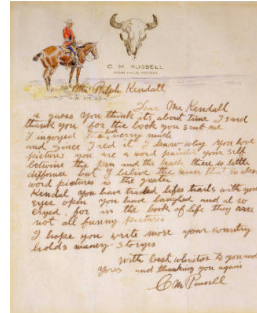 C. M. RUSSELL
GREAT FALLS, MONTANA
Mr Ralph Kendall
Dear Mr Kendall
I guess you think its about time I said
thank you for the book you sent me
I injoyed it very much
and since I red it I know why you love
pictures you are a word painter your self
between the pen and the brush there is little
diffornce but I belive the man that makes
word pictures is the greater
Kendal you have traled lifes trails with your
eyes open you have laughed and al so
cryed for in the book of life they are
not all funny pictures
I hope you write more your country
holds maney storyes
With best whishes to you and
yours and thanking you again
C M Russell